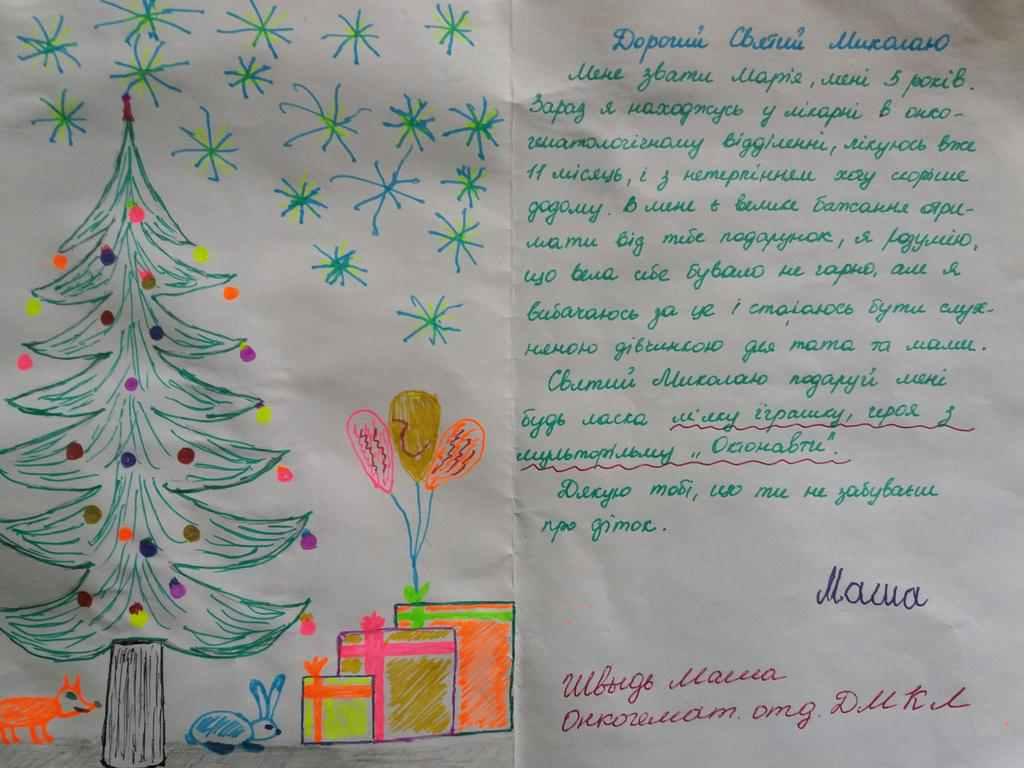 Дорогий Святий Миколаю
Мене звати Марія, мені 5 років.
Зараз я находжусь у лікарні в онко-
гематологічному відділенні, лікуюсь вже
11 місяць, і з нетерпінням хочу скоріше
додому. В мене є велике бажання отри-
мати від тебе подарунок, я розумію,
що вела себе бувало не гарно, але я
вибачаюсь за це і стараюсь бути слух-
няною дівчинкою для тата та мами.
Святий Миколаю подаруй мені
будь ласка мілку іграшку, героя з
мультфільму „Октонавти".
Дякую тобі, що ти не забуваєш
про діток.
Маша
Швыдь Маша
онкогемат. отд. ДМКЛ